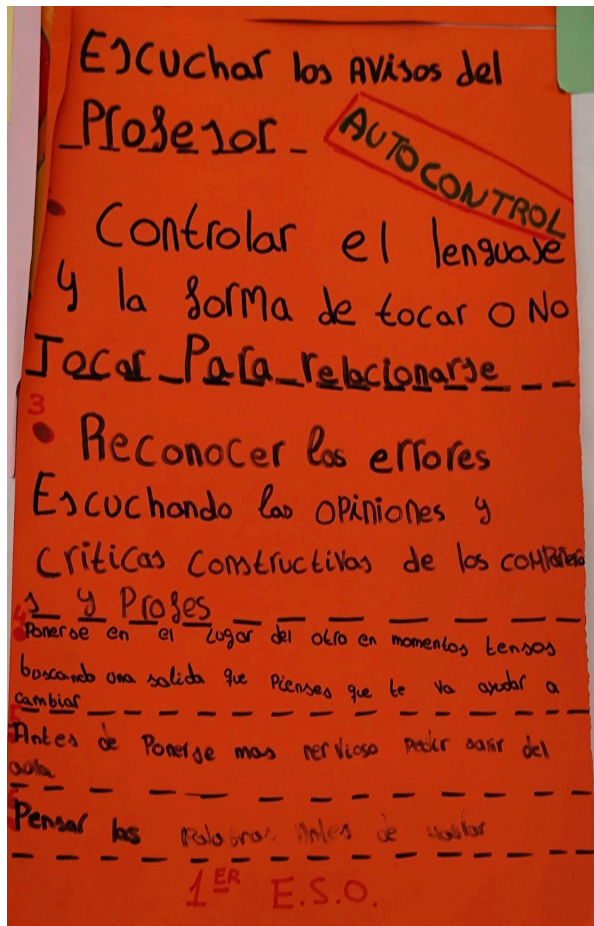 Escuchar los Avisos del
Profesor
AUTOCONTROL
Controlar el lenguaje
y la forma de tocar o No
Tocar Para relacionarse
3
Reconocer los errores
Escuchando las opiniones y
criticas constructivas de los compañero
s y Profes
4
Ponerse en el lugar del otro en momentos tensos
buscando una salida que Pienses que te va ayudar a
cambiar
5
Antes de Ponerse mas nervioso pedir salir del
aula
Pensar las Palabras Antes de hablar
1ER E.S.O.